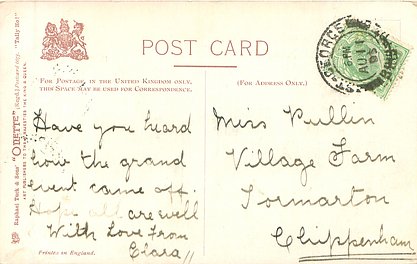 POST CARD
FOR POSTAGE, IN THE UNITED KINGDOM ONLY,
THIS SPACE MAY BE USED FOR CORRESPONDENCE.
(FOR ADDRESS ONLY.)
Have you heard
how the grand
event came off.
Hope all are well
With Love from
Clara
Miss Pullin
Village Farm
Tormarton
Chippenham
Printed in England.
Raphael Tuck & Sons' "OILETTE"
ART PUBLISHERS TO THEIR MAJESTIES THE KING & QUEEN.
"Tally Ho!"
ST GEORGE
AU 11
05